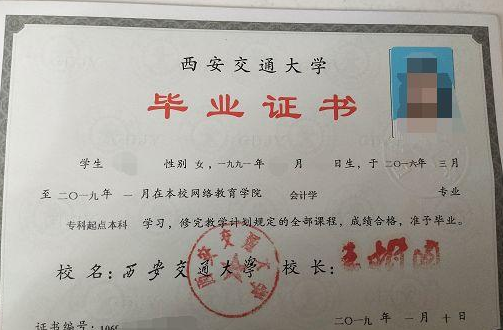 西安交通大学
毕业证书
学生 性别 女，一九九一年 月 日生，于二〇一六年 三月
至 二〇一九年 一月在本校网络教育学院 会计学 专业
专科起点本科 学习，修完教学计划规定的全部课程，成绩合格，准予毕业。
校 名：西安交通大学 校 长：
西安交通大学
证书编号：
二〇一九 年 一 月 十 日